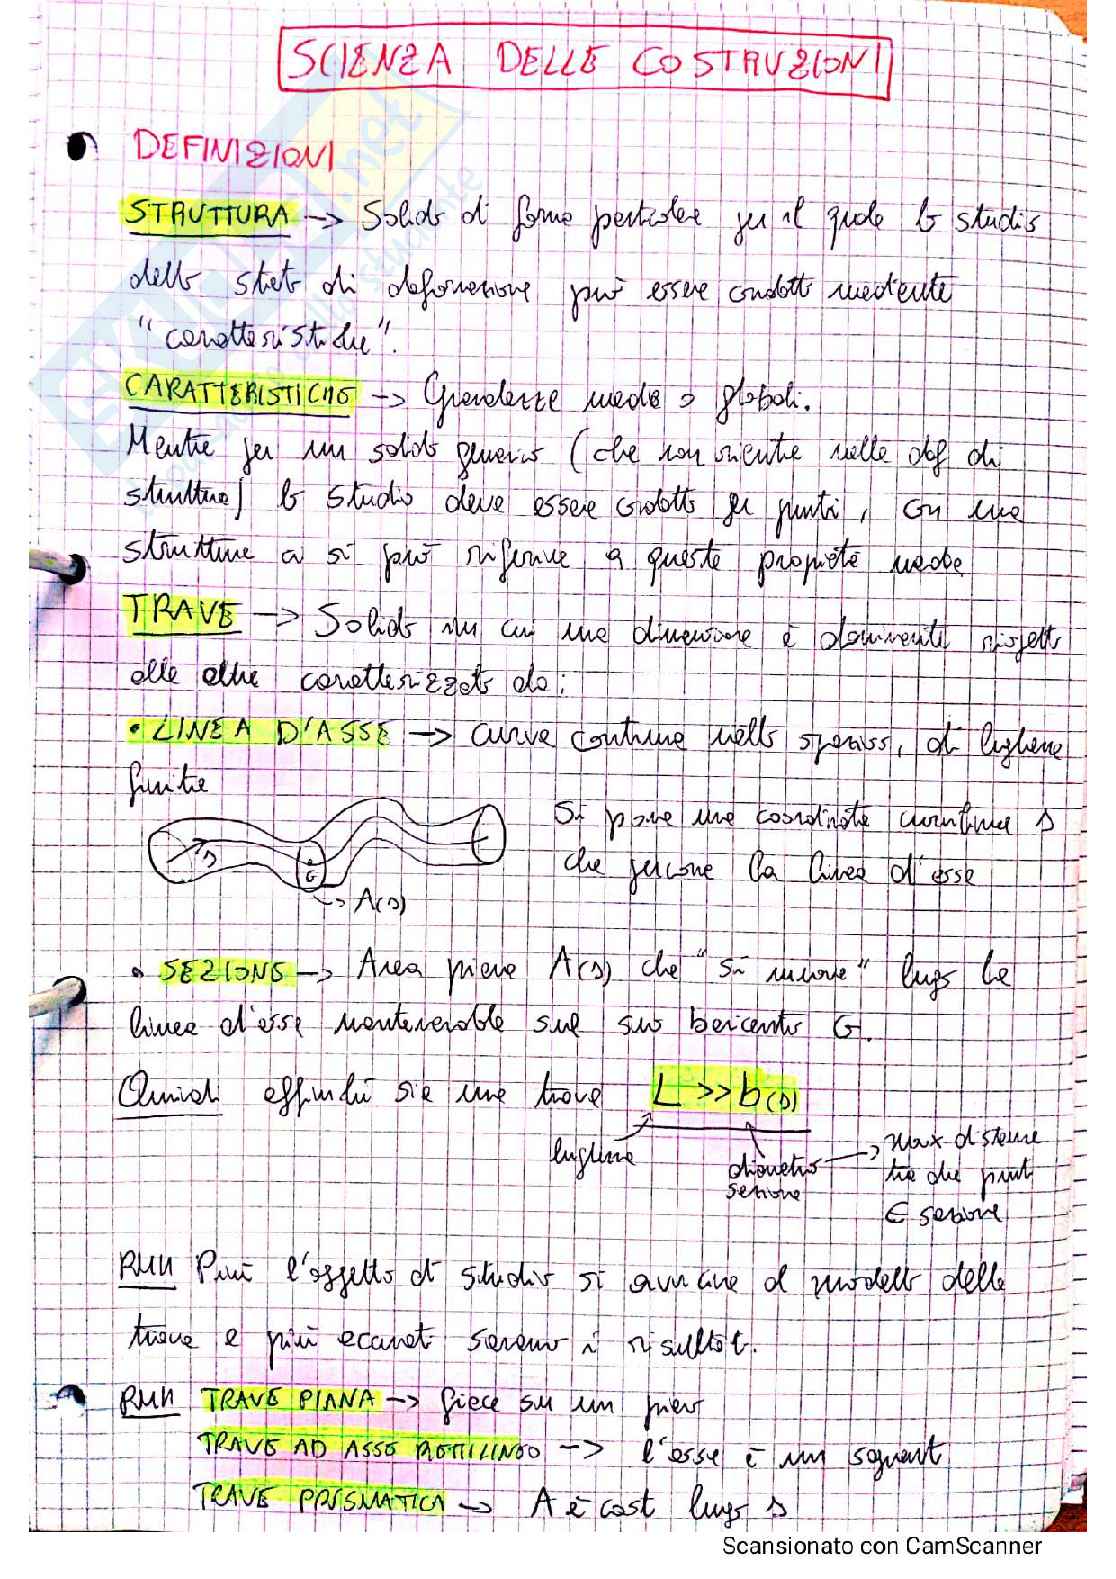 SCIENZA DELLE COSTRUZIONI
DEFINIZIONI
STRUTTURA -> Solido di forma particolare per il quale lo studio
dello stato di deformazione può essere condotto mediante
"caratteristiche".
CARATTERISTICHE -> Grandezze medie o globali.
Mentre per un solido generico (che non rientra nella def di
struttura) lo studio deve essere condotto per punti, con una
struttura ci si può riferire a queste proprietà medie
TRAVE -> Solido in cui una dimensione è dominante rispetto
alle altre caratterizzato da:
• LINEA D'ASSE -> curva continua nello spazio, di lunghezza
finita
Si pone una coordinata curvilinea s
che percorre la linea d'asse
s
G
-> A(s)
• SEZIONE -> Area piana A(s) che "si muove" lungo la
linea d'asse mantenendola sul suo baricentro G.
Quindi affinché sia una trave L >> b(s)
lunghezza
diametro
sezione
-> max distanza
tra due punti
∈ sezione
RMK Più l'oggetto di studio si avvicina al modello della
trave e più accurati saranno i risultati.
RMK TRAVE PIANA -> giace su un piano
TRAVE AD ASSE RETTILINEO -> l'asse è un segmento
TRAVE PRISMATICA -> A è cost lungo s
Scansionato con CamScanner